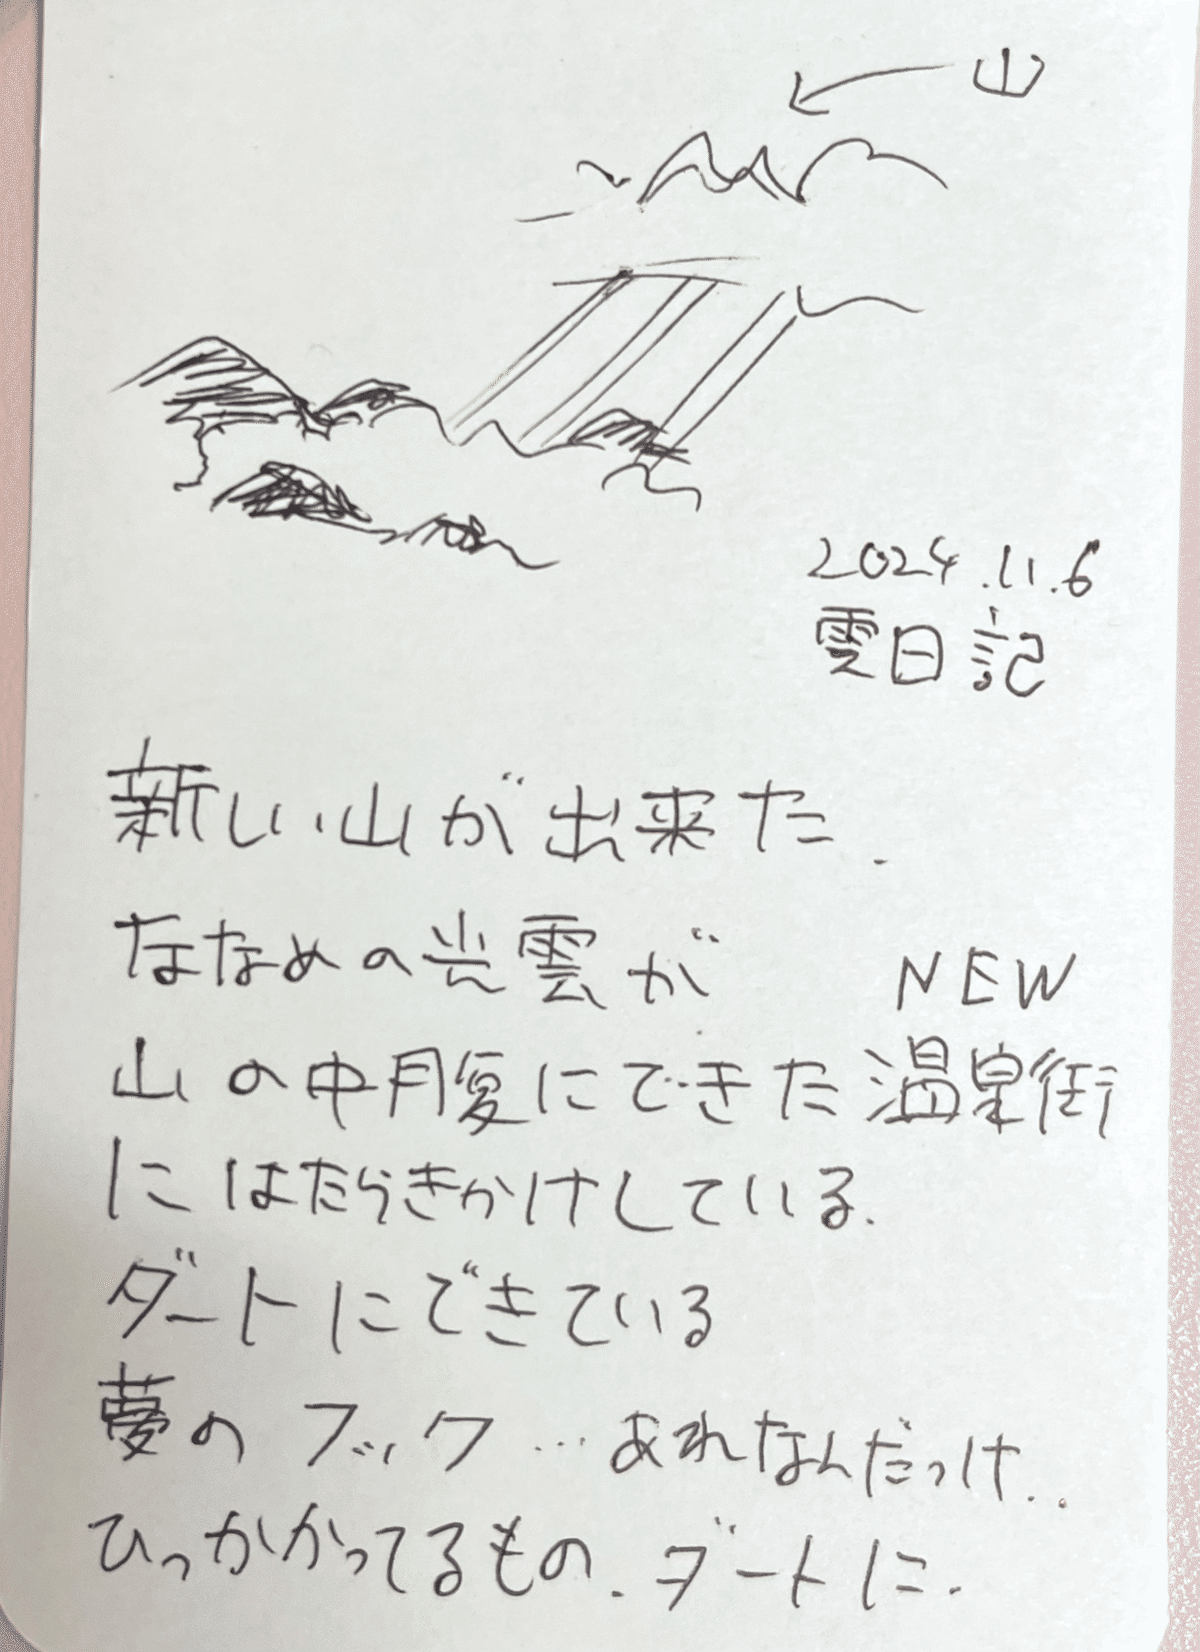 山
2024.11.6
雲日記
新しい山が出来た.
ななめの光雲が
NEW
山の中腹にできた温泉街
にはたらきかけしている.
ダートにできている
夢のフック…あれなんだっけ..
ひっかかってるもの.ダートに.